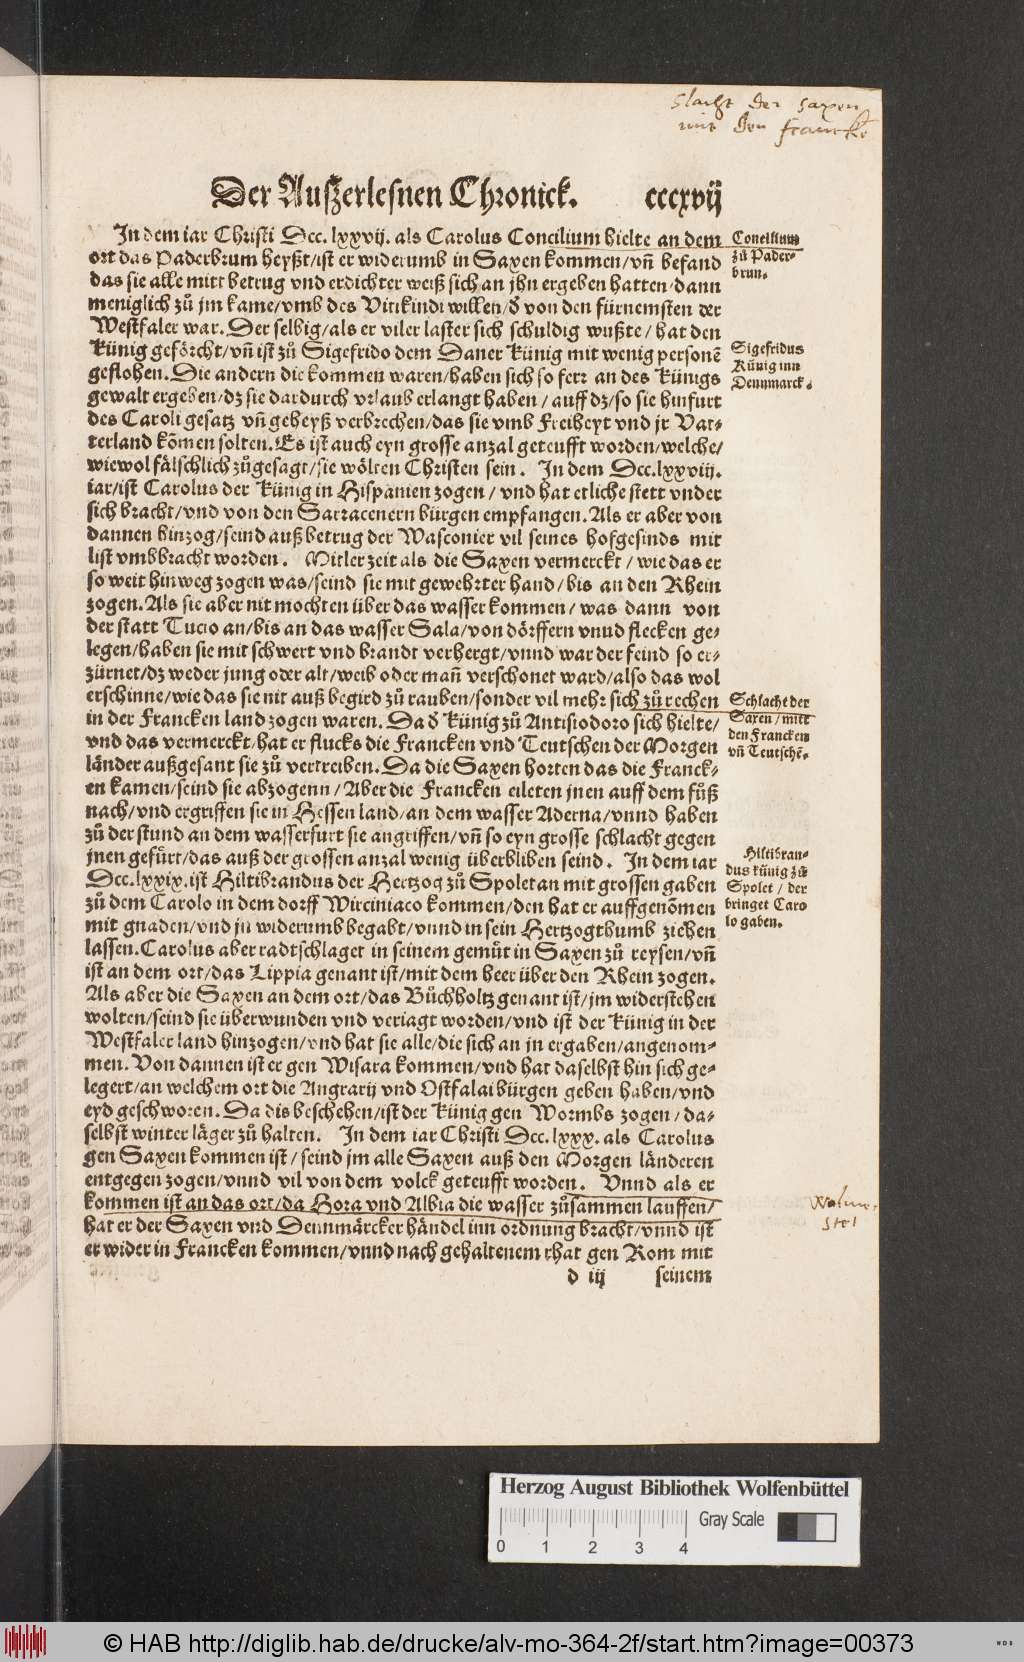 Slacht der saxen
mit den francke
Der Außerlesnen Chronick. cccxvij
In dem iar Christi Dcc. lxxvij. als Carolus Concilium hielte an dem
ort das Paderbrum heyßt/ist er widerumb in Saxen kommen/vñ befand
das sie alle mitt betrug vnd erdichter weiß sich an jhn ergeben hatten/dann
meniglich zů jm kame/vmb des Vitikindi willen/ď von den fürnemsten der
Westfaler war. Der selbig/als er viler laster sich schuldig wußte/hat den
Künig geförcht/vñ ist zů Sigefrido dem Daner Künig mit wenig personẽ
geflohen. Die andern die kommen waren/haben sich so ferr an des Künigs
gewalt ergeben/dz sie dardurch vrlaub erlangt haben/auff dz/so sie hinfurt
des Caroli gesatz vñ geheyß verbrechen/das sie vmb Freiheyt vnd jr Vat-
terland kõmen solten. Es ist auch eyn grosse anzal geteufft worden/welche/
wiewol fälschlich zůgesagt/sie wölten Christen sein. In dem Dcc.lxxviij.
iar/ist Carolus der Künig in Hispanien zogen/vnd hat etliche stett vnder
sich bracht/vnd von den Sarracenern bürgen empfangen. Als er aber von
dannen hinzog/seind auß betrug der Wasconier vil seines hofgesinds mit
list vmbbracht worden. Mitler zeit als die Saxen vermerckt/wie das er
so weit hinweg zogen was/seind sie mit gewehrter hand/bis an den Rhein
zogen. Als sie aber nit mochten über das wasser kommen/was dann von
der statt Tucio an/bis an das wasser Sala/von dörffern vnnd flecken ge-
legen/haben sie mit schwert vnd brandt verhergt/vnnd war der feind so er-
zürnet/dz weder jung oder alt/weib oder mañ verschonet ward/also das wol
erschinne/wie das sie nit auß begird zů rauben/sonder vil mehr sich zů rechen
in der Francken land zogen waren. Da ď Künig zů Antisiodoro sich hielte/
vnd das vermerckt/hat er flucks die Francken vnd Teutschen der Morgen
länder außgesant sie zů vertreiben. Da die Saxen horten das die Franck-
en kamen/seind sie abzogenn/Aber die Francken eileten jnen auff dem fůß
nach/vnd ergriffen sie in Hessen land/an dem wasser Aderna/vnnd haben
zů der stund an dem wasserfurt sie angriffen/vñ so eyn grosse schlacht gegen
jnen gefůrt/das auß der grossen anzal wenig überbliben seind. In dem iar
Dcc.lxxix. ist Hiltibrandus der Hertzog zů Spoletan mit grossen gaben
zů dem Carolo in dem dorff Wirciniaco kommen/den hat er auffgenõmen
mit gnaden/vnd jn widerumb begabt/vnnd in sein Hertzogthumb ziehen
lassen. Carolus aber radtschlaget in seinem gemůt in Saxen zů reysen/vñ
ist an dem ort/das Lippia genant ist/mit dem heer über den Rhein zogen.
Als aber die Saxen an dem ort/das Bůchholtz genant ist/jm widerstehen
wolten/seind sie überwunden vnd veriagt worden/vnd ist der Künig in der
Westfaler land hinzogen/vnd hat sie alle/die sich an jn ergaben/angenom-
men. Von dannen ist er gen Wisara kommen/vnd hat daselbst hin sich ge-
legert/an welchem ort die Angrarij vnd Ostfalai bürgen geben haben/vnd
eyd geschworen. Da dis beschehen/ist der Künig gen Wormbs zogen/da-
selbst winter läger zů halten. In dem iar Christi Dcc.lxxx. als Carolus
gen Saxen kommen ist/seind jm alle Saxen auß den Morgen länderen
entgegen zogen/vnnd vil von dem volck geteufft worden. Vnnd als er
kommen ist an das ort/da Hora vnd Albia die wasser zůsammen lauffen/
hat er der Saxen vnd Dennmärcker händel inn ordnung bracht/vnnd ist
er wider in Francken kommen/vnnd nach gehaltenem rhat gen Rom mit
d iij seinem
Concilium
zů Pader-
brun.
Sigefridus
Künig inn
Dennmarck.
Schlacht der
Saxen/mitt
den Francken
vñ Teutschẽ.
Hiltibran-
dus künig zů
Spolet/der
bringet Caro
lo gaben.
Wolmer
stet
Herzog August Bibliothek Wolfenbüttel
Gray Scale
0 1 2 3 4
© HAB http://diglib.hab.de/drucke/alv-mo-364-2f/start.htm?image=00373